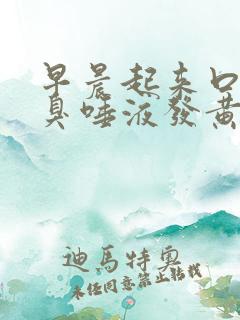 早晨起来口
臭唾液發黄
迪馬特奧
未经同意禁止转载